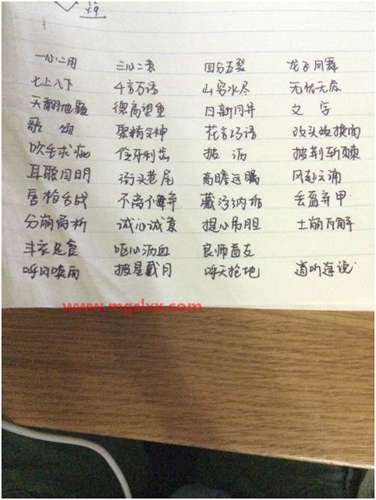 一心二用 三心二意 四分五裂 龙飞凤舞
七上八下 千言万语 山穷水尽 无忧无虑
天翻地覆 德高望重 日新月异 文 字
歌 颂 聚精会神 花言巧语 改头换面
吹毛求疵 伶牙利齿 披 沥 披荆斩棘
耳聪目明 街头巷尾 高瞻远瞩 风起云涌
唇枪舌战 不离不弃 藏污纳垢 丢盔弃甲
分崩离析 诚心诚意 提心吊胆 土崩瓦解
丰衣足食 呕心沥血 良师益友
呼风唤雨 披星戴月 呼天抢地 道听途说
www.mgslxx.com